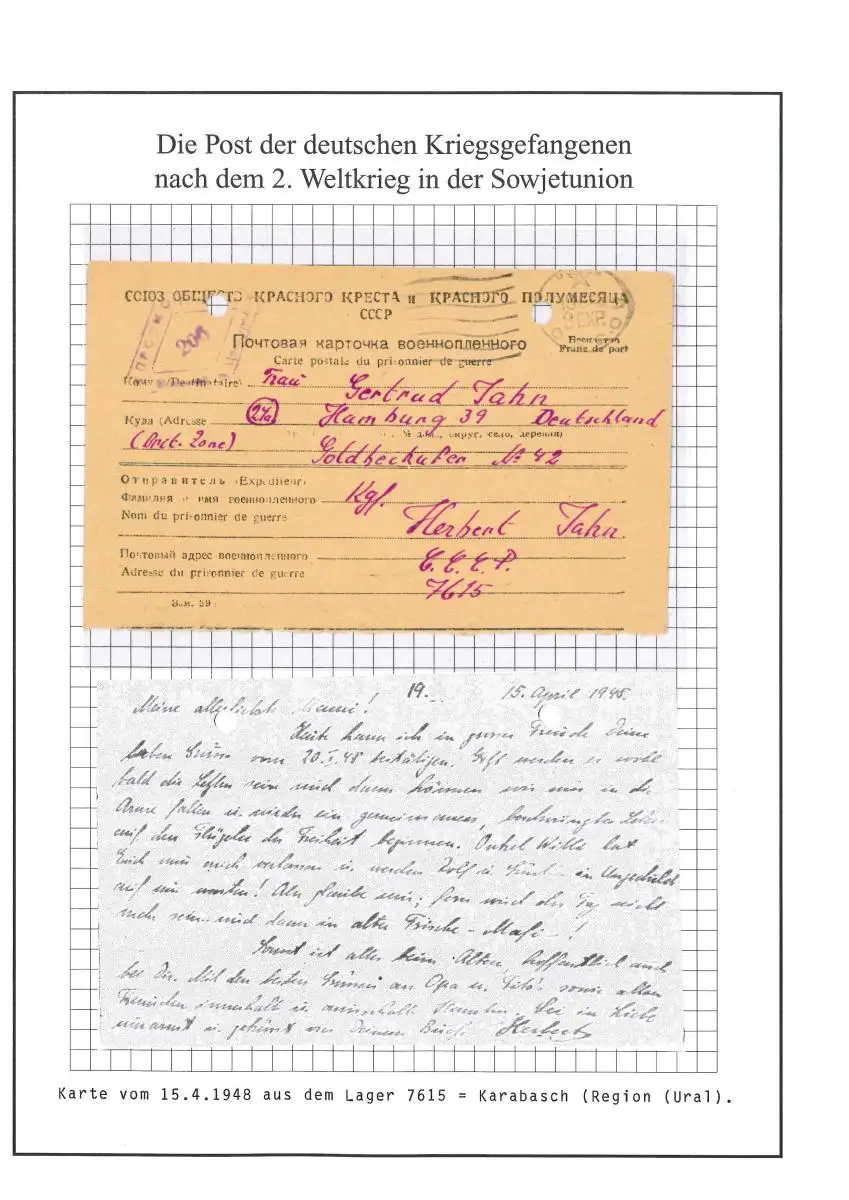 Die Post der deutschen Kriegsgefangenen
nach dem 2. Weltkrieg in der Sowjetunion
СОЮЗ ОБЩЕСТВ КРАСНОГО КРЕСТА и КРАСНОГО ПОЛУМЕСЯЦА
СССР
Почтовая карточка военнопленного
Carte postale du prisonnier de guerre
Бесплатно
Franc de port
Кому (Destinataire) Frau Gertrud Jahn
Куда (Adresse (24a) Hamburg 39 Deutschland
(Brit. Zone) Goldbeckufer № 42
Отправитель (Expediteur)
Фамилия и имя военнопленного Kgf.
Nom du prisonnier de guerre Herbert Jahn
Почтовый адрес военнопленного C.C.C.P.
Adresse du prisonnier de guerre 7615
Зак. 59
19. 15. April 1948.
Meine allerliebste Mami!
Heute kann ich in grosser Freude Deine
lieben Grüsse vom 20.I.48 bestätigen. werden es wohl
bald die letzten sein und dann können wir uns in die
Arme fallen u. wieder ein gemeinsames, beschwingtes Leben
auf den Flügeln der Freiheit beginnen. Onkel Willi hat
mich verlassen u. werden Rolf u. in Ungeduld
auf warten! Aber glaube mir; fern wird der Tag nicht
mehr sein und dann in alter Frische - !
Sonst ist alles beim Alten, hoffentlich auch
bei Dir. Mit den besten Grüssen an Opa u. sowie allen
Freunden innerhalb u. ausserhalb Sei in Liebe
umarmt u. geküsst von Deinem Herbert
Karte vom 15.4.1948 aus dem Lager 7615 = Karabasch (Region (Ural).